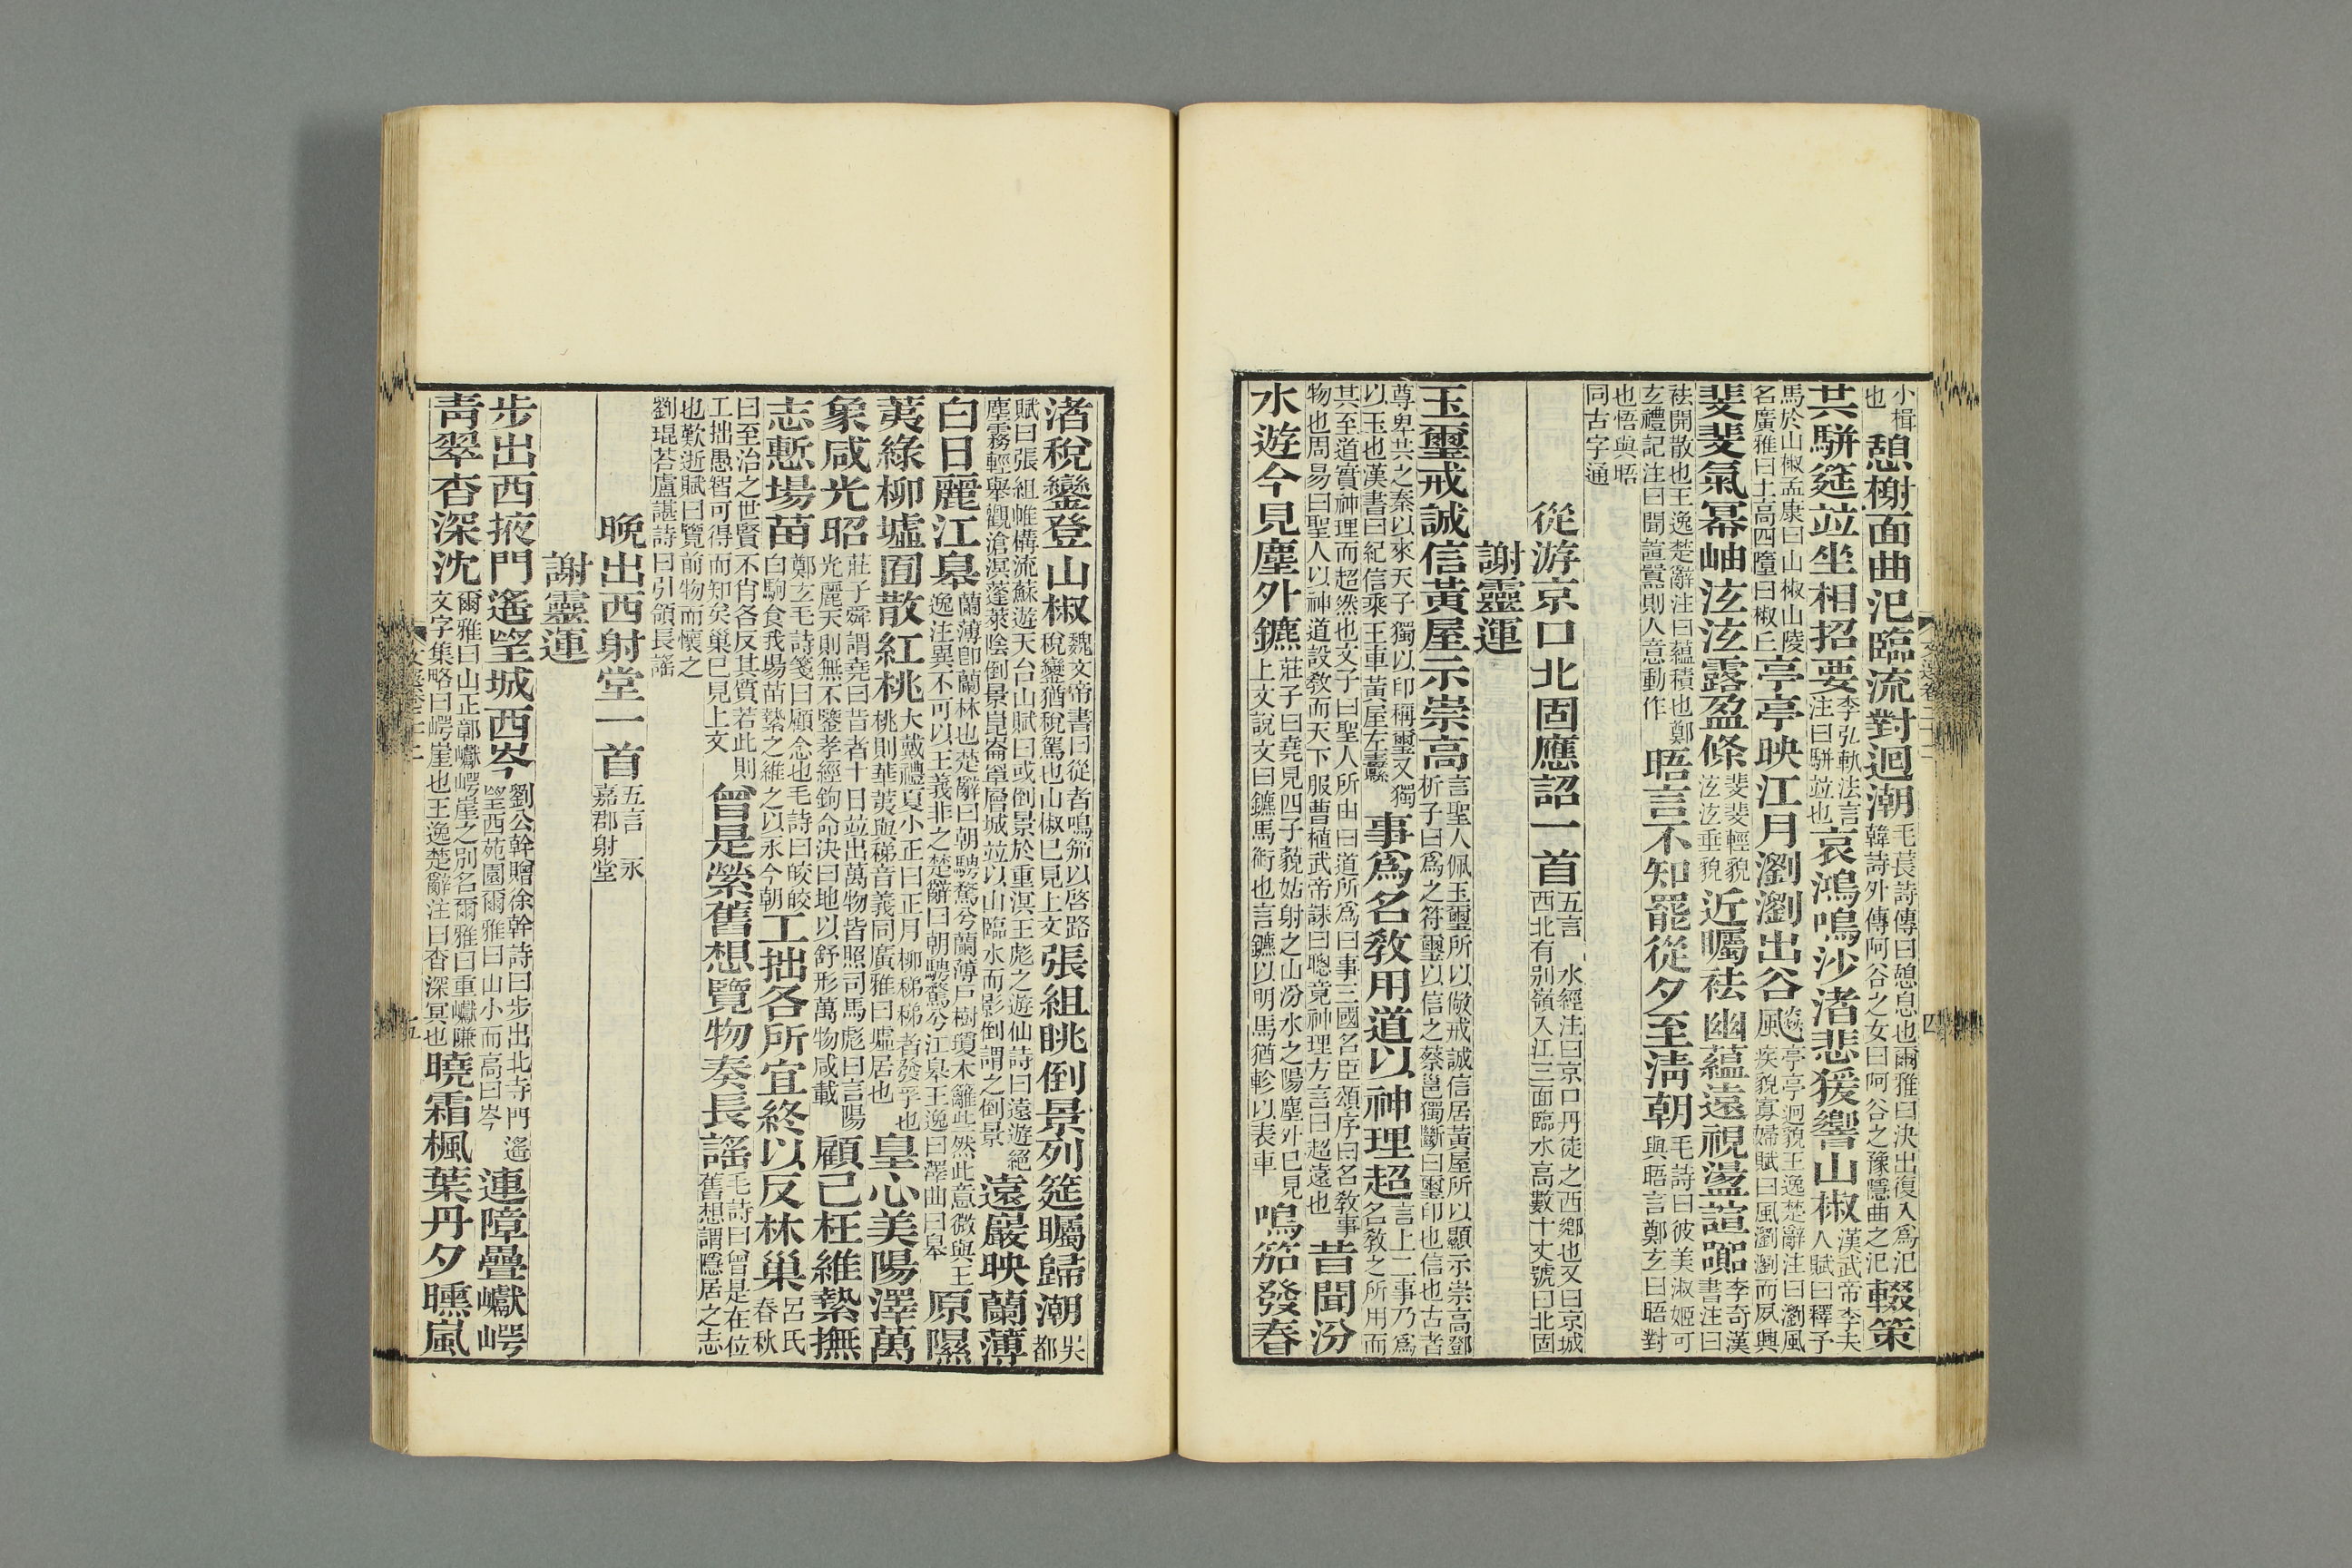 小楫也憩榭面曲汜臨流對迴潮毛萇詩傳曰憩息也爾雅曰決出復入爲汜韓詩外傳阿谷之女曰阿谷之豫隱曲之汜輟策
共駢筵竝坐相招要李弘軌法言注曰駢竝也哀鴻鳴沙渚悲猨響山椒漢武帝李夫人賦曰釋予
馬於山椒孟康曰山椒山陵名廣雅曰土高四墮曰椒丘亭亭映江月瀏瀏出谷飈亭亭迥貌王逸楚辭注曰瀏風疾貌寡婦賦曰風瀏瀏而夙興
斐斐氣冪岫泫泫露盈條斐斐輕貌泫泫垂貌近矚袪幽蘊遠視盪諠囂李奇漢書注曰
袪開散也王逸楚辭注曰蘊積也鄭玄禮記注曰聞諠囂則人意動作晤言不知罷從夕至清朝毛詩曰彼美淑姬可與晤言鄭玄曰晤對
也悟與晤同古字通
從游京口北固應詔一首五言 水經注曰京口丹徒之西鄉也又曰京城西北有別嶺入江三面臨水高數十丈號曰北固
謝靈運
玉璽戒誠信黃屋示崇高言聖人佩玉璽所以儆戒誠信居黃屋所以顯示崇高鄧析子曰爲之符璽以信之蔡邕獨斷曰璽印也信也古者
尊卑共之秦以來天子獨以印稱璽又獨以玉也漢書曰紀信乘王車黃屋左纛事爲名教用道以神理超言上二事乃爲名教之所用而
其至道實神理而超然也文子曰聖人所由曰道所爲曰事三國名臣頌序曰名教事物也周易曰聖人以神道設教而天下服曹植武帝誄曰聰竟神理方言曰超遠也昔聞汾
水遊今見塵外鑣莊子曰堯見四子藐姑射之山汾水之陽塵外已見上文說文曰鑣馬銜也言鑣以明馬猶軫以表車鳴笳發春
四
渚稅鑾登山椒魏文帝書曰從者鳴笳以啓路稅鑾猶稅駕也山椒已見上文張組眺倒景列筵矚歸潮吳都
賦曰張組帷構流蘇遊天台山賦曰或倒景於重溟王彪之遊仙詩曰遠遊絕塵霧輕舉觀滄溟蓬萊陰倒景崑崙罩層城竝以山臨水而影倒謂之倒景遠巖映蘭薄
白日麗江皋蘭薄卽蘭林也楚辭曰朝騁騖兮蘭薄戶樹瓊木籬些然此意微與王逸注異不可以王義非之楚辭曰朝騁騖兮江皋王逸曰澤曲曰皋原隰
荑綠柳墟囿散紅桃大戴禮夏小正曰正月柳稊稊者發孚也桃則華荑與稊音義同廣雅曰墟居也皇心美陽澤萬
象咸光昭莊子舜謂堯曰昔者十日竝出萬物皆照司馬彪曰言陽光麗天則無不鑒孝經鉤命決曰地以舒形萬物咸載顧己枉維縶撫
志慙場苗鄭玄毛詩箋曰顧念也毛詩曰皎皎白駒食我場苗縶之維之以永今朝工拙各所宜終以反林巢呂氏春秋
曰至治之世賢不肖各反其質若此則工拙愚智可得而知矣巢已見上文曾是縈舊想覽物奏長謠毛詩曰曾是在位舊想謂隱居之志
也歎逝賦曰覽前物而懷之劉琨荅盧諶詩曰引領長謠
晚出西射堂一首五言 永嘉郡射堂
謝靈運
步出西掖門遙望城西岑劉公幹贈徐幹詩曰步出北寺門遙望西苑園爾雅曰山小而高曰岑連障疊巘崿
青翠杳深沈爾雅曰山正郭巘崿崖之別名爾雅曰重巘隒文字集略曰崿崖也王逸楚辭注曰杳深冥也曉霜楓葉丹夕曛嵐
五